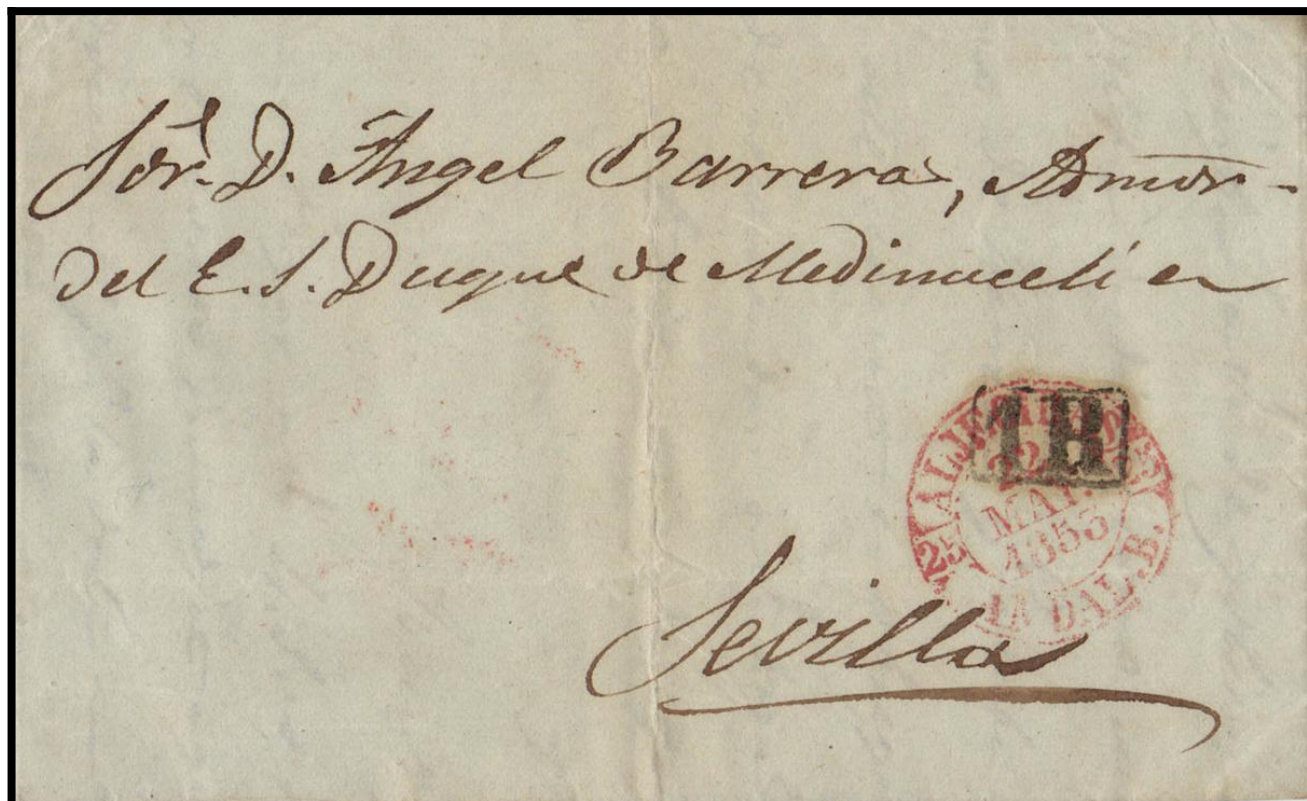 Sor. D. Angel Barrera, Admor.
del E. S. Duque de Medinaceli en
1R
25 MAY. 1853
ANDAL. B.
Sevilla